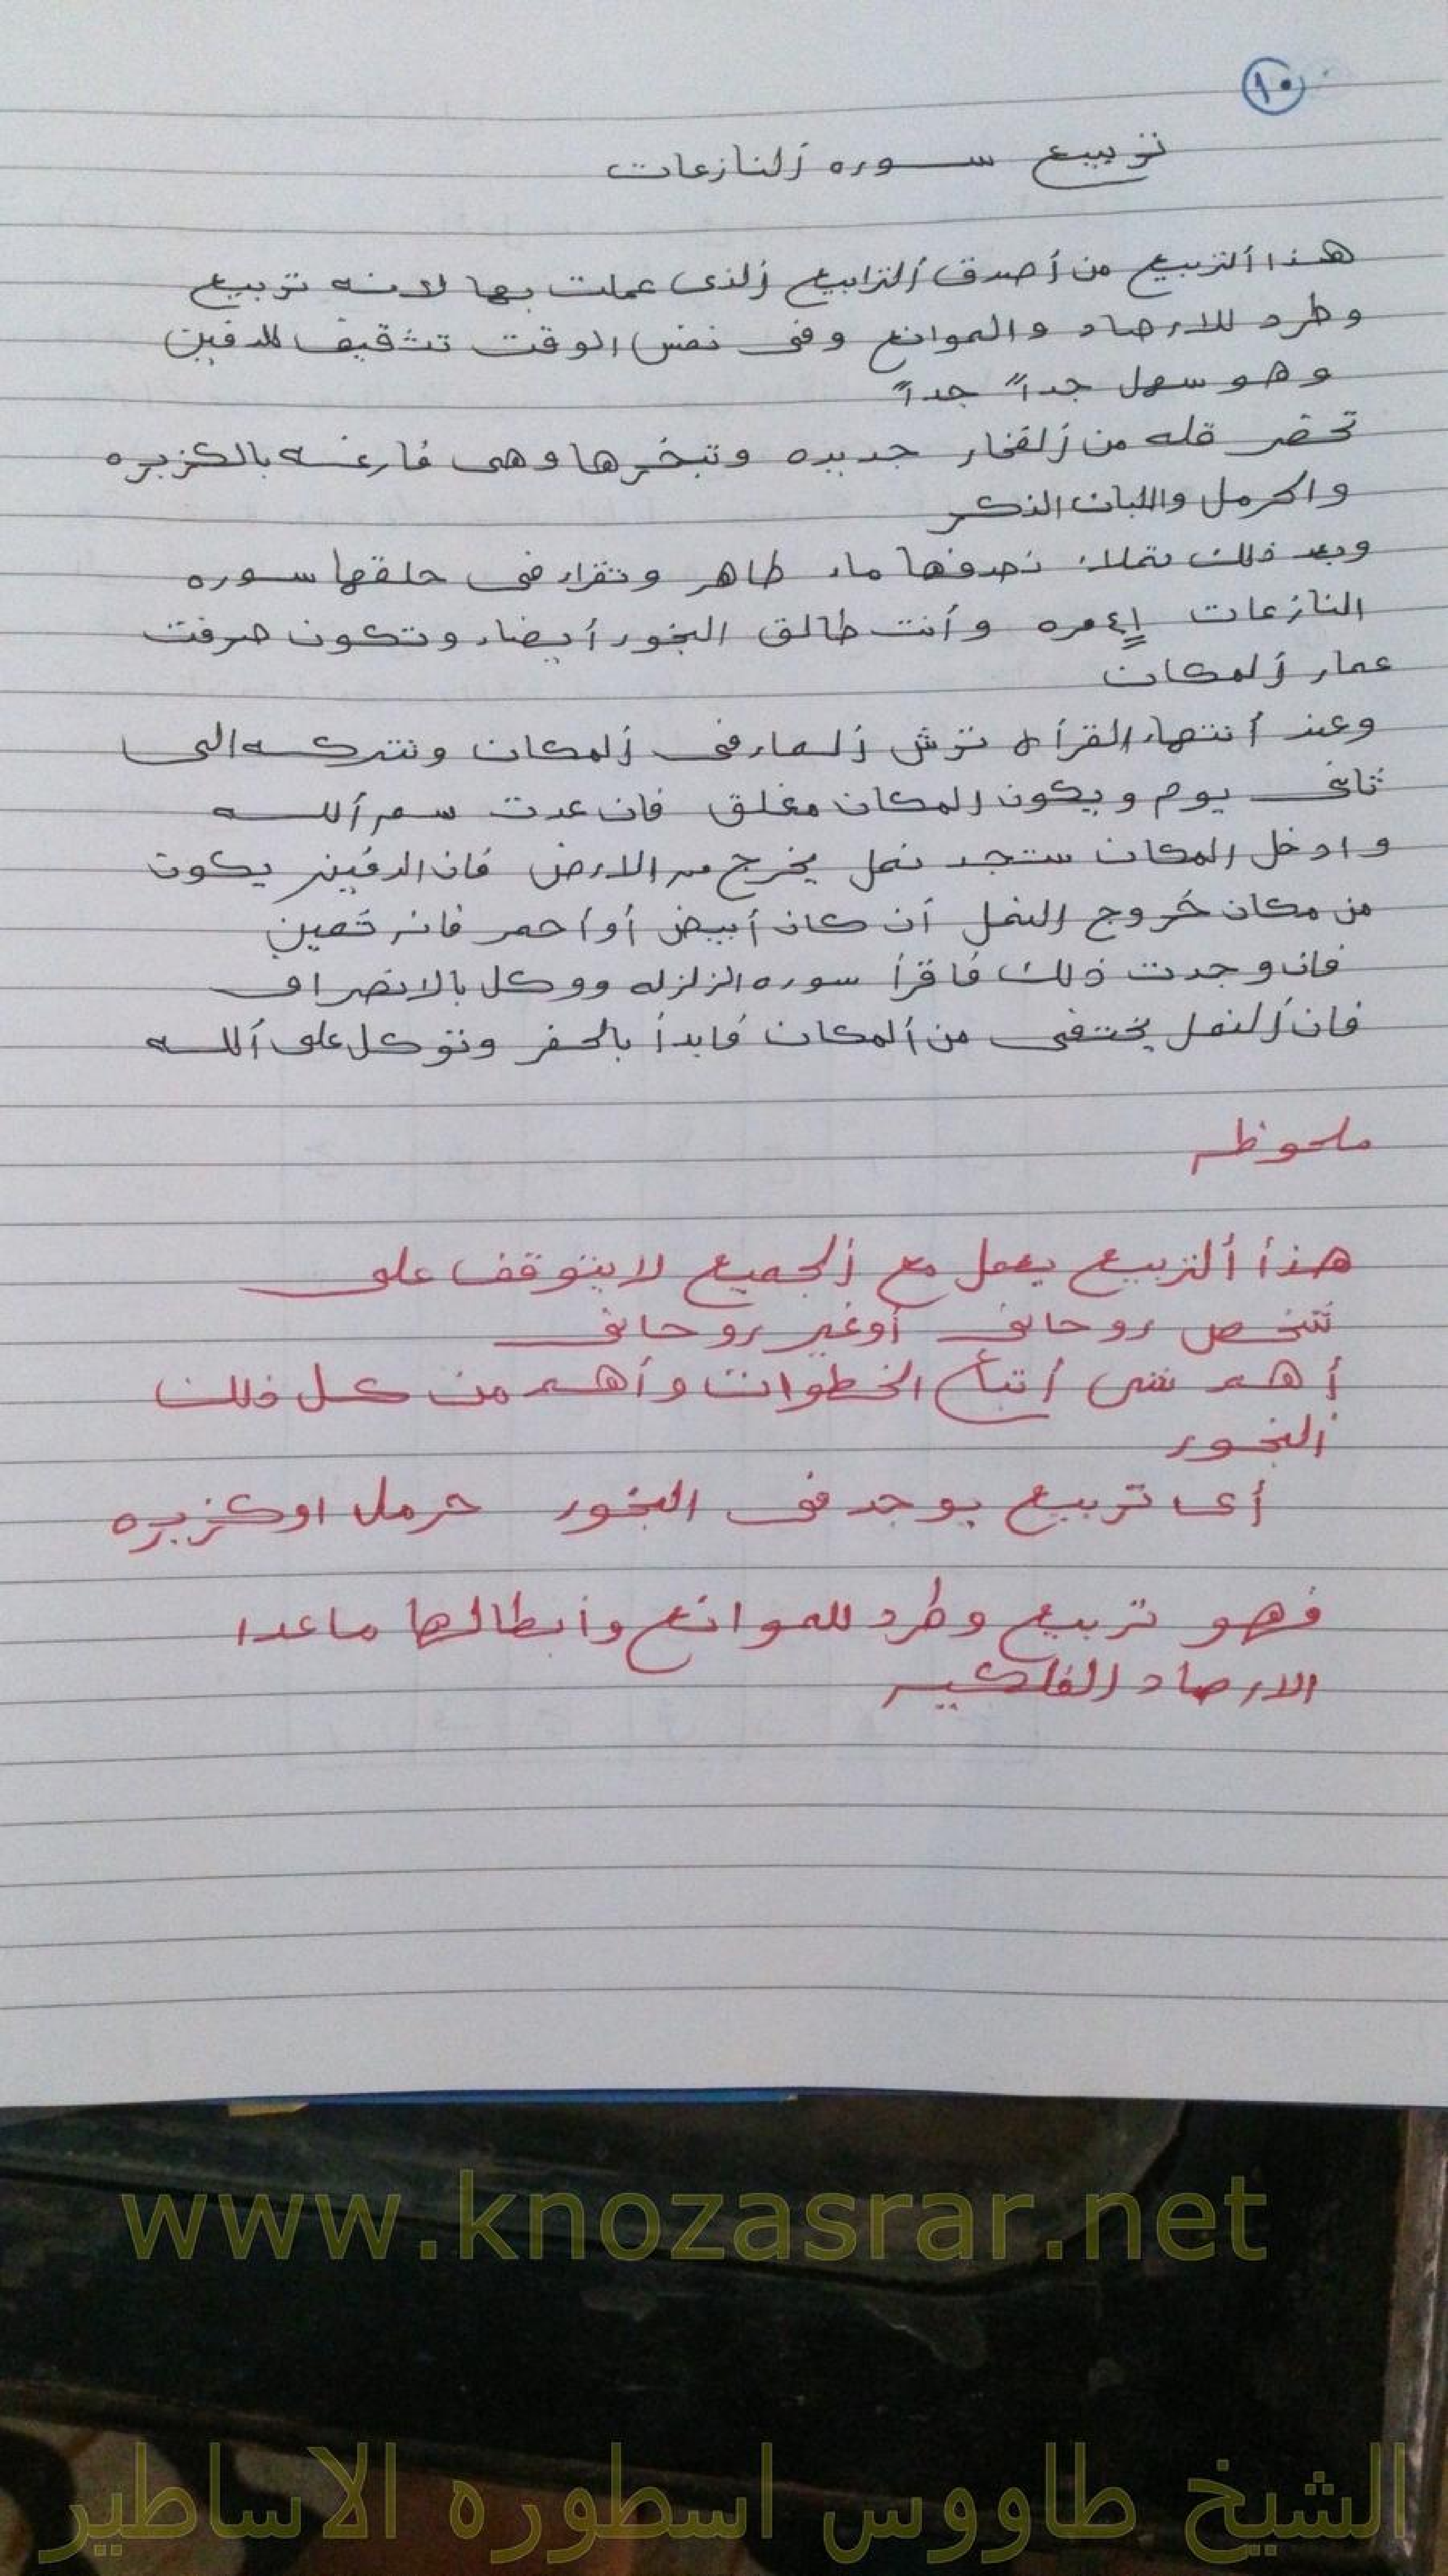 ١٠
تربيع سوره ألنازعات
هذا ألتربيع من أصدق ألترابيع ألذى عملت بها لانه تربيع
وطرد للارصاد والموانع وفى نفس الوقت تثقيف للدفين
وهو سهل جداً جداً
تحضر قله من ألفخار جديده وتبخرها وهى فارغه بالكزبره
والحرمل واللبان الذكر
وبعد ذلك تملاء نصفها ماء طاهر وتقراء فى حلقها سوره
النازعات مره وأنت طالق البخور أيضاء وتكون صرفت
عمار ألمكان
وعند أنتهاء القرأه ترش ألماء فى ألمكان وتتركه الى
ثانى يوم ويكون المكان مغلق فان عدت سم ألله
وادخل المكان ستجد نمل يخرج من الارض فان الدفين يكون
من مكان خروج النمل أن كان أبيض أو أحمر فانه ثمين
فان وجدت ذلك فاقرأ سوره الزلزله ووكل بالانصراف
فان ألنمل يختفى من ألمكان فابدأ بالحفر وتوكل على ألله
ملحوظه
هذأ ألتربيع يعمل مع ألجميع لا يتوقف على
شخص روحانى أوغير روحانى
أهم شى أتباع الخطوات وأهم من كل ذلك
البخور
أى تربيع يوجد فى البخور حرمل اوكزبره
فهو تربيع وطرد للموانع وأبطالها ماعدا
الارصاد الفلكيه
www.knozasrar.net
الشيخ طاووس اسطوره الاساطير